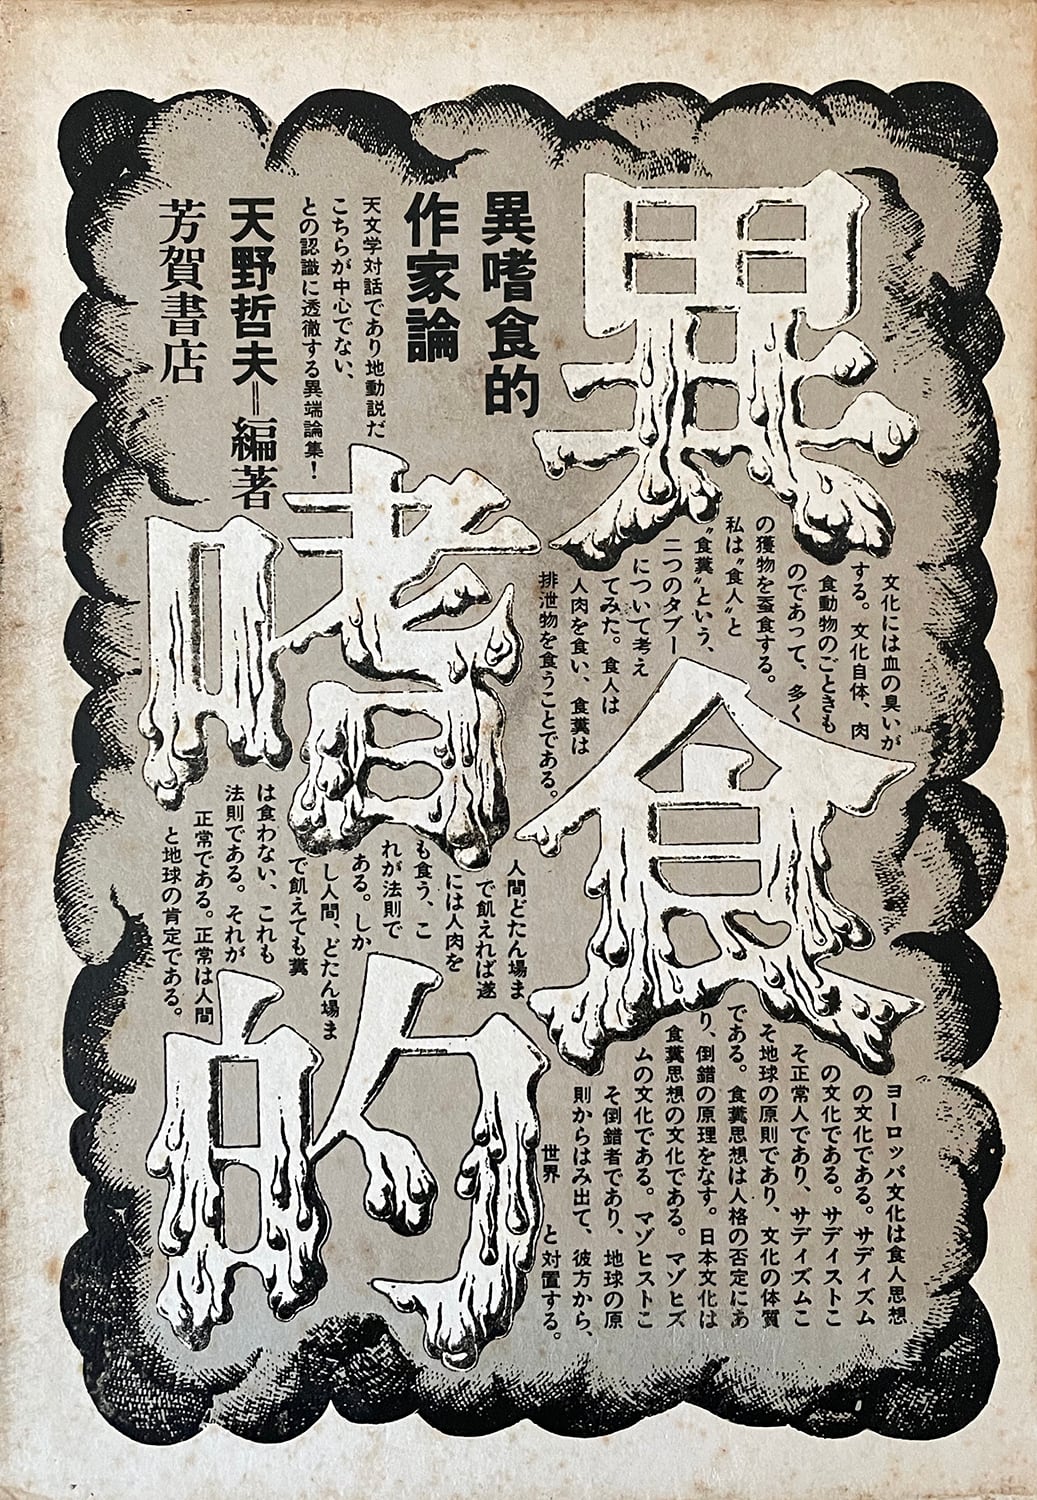 異嗜食的
異嗜食的
作家論
天文学対話であり地動説だ
こちらが中心でない、
との認識に透徹する異端論集！
天野哲夫＝編著
芳賀書店
文化には血の臭いが
する。文化自体、肉
食動物のごときも
のであって、多く
の獲物を蚕食する。
私は〝食人〟と
〝食糞〟という、
二つのタブー
について考え
てみた。食人は
人肉を食い、食糞は
排泄物を食うことである。
人間どたん場ま
で飢えれば遂
には人肉を
も食う、こ
れが法則で
ある。しか
し人間、どたん場ま
で飢えても糞
は食わない、これも
法則である。それが
正常である。正常は人間
と地球の肯定である。
ヨーロッパ文化は食人思想
の文化である。サディズム
の文化である。サディストこ
そ正常人であり、サディズムこ
そ地球の原則であり、文化の体質
である。食糞思想は人格の否定にあ
り、倒錯の原理をなす。日本文化は
食糞思想の文化である。マゾヒズ
ムの文化である。マゾヒストこ
そ倒錯者であり、地球の原
則からはみ出て、彼方から、
世界と対置する。